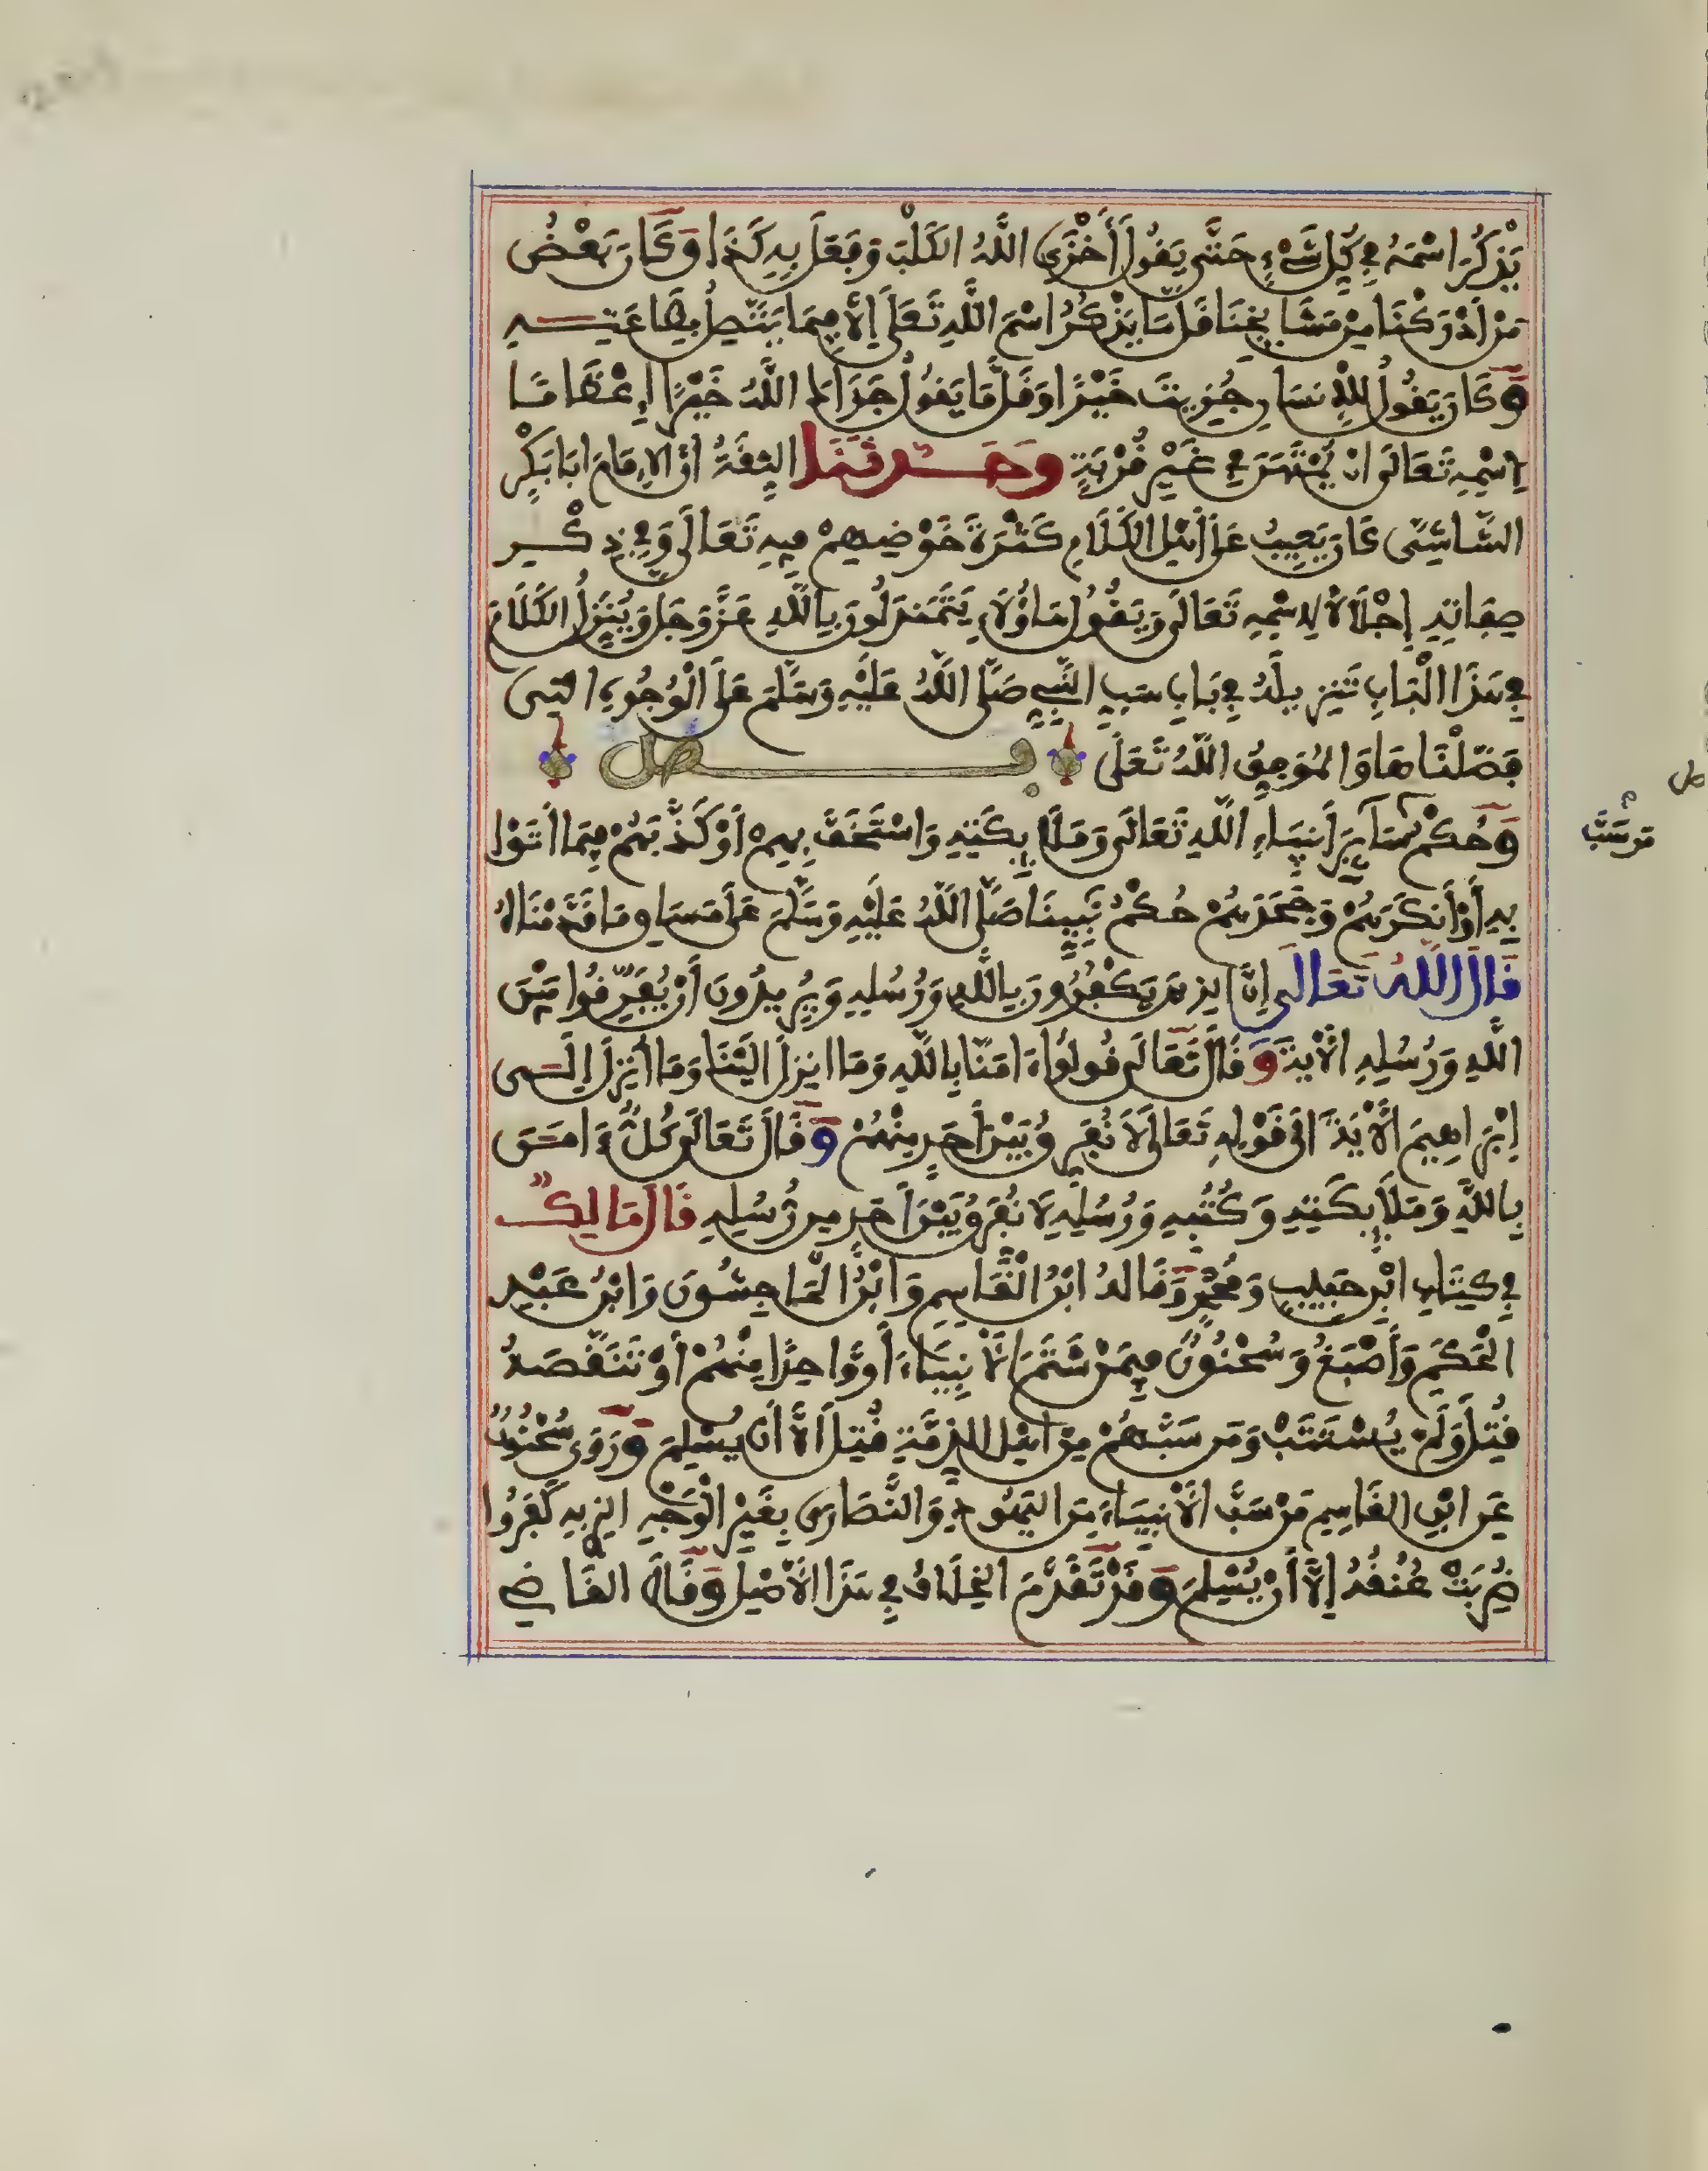 يَذْكُرَ اسْمَهُ فِي كُلِّ شَيْءٍ حَتَّى يَقُولَ أَخْزَى اللَّهُ الكَلْبَ وَفَعَلَ بِهِ كَذَا وَكَانَ بَعْضُ
مَنْ أَدْرَكْنَا مِنْ مَشَايِخِنَا قَلَّ مَا يَذْكُرُ اسْمَ اللَّهِ تَعَلَى إِلَّا فِيمَا يَتَّصِلُ بِطَاعَتِهِ
وَكَانَ يَقُولُ لِلْإِنسَانِ جُزِيتَ خَيْرًا وَقَلَّ مَا يَقُولُ جَزَاكَ اللَّهُ خَيْرًا إِعْظَامًا
لِاسْمِهِ تَعَالَى أَنْ يُمْتَهَنَ فِي غَيْرِ قُرْبَةٍ وَحَدَّثَنَا الثِّقَةُ أَنَّ الإِمَامَ أَبَا بَكْرٍ
الشَّاشِيَّ كَانَ يَعِيبُ عَلَى أَهْلِ الكَلَامِ كَثْرَةَ خَوْضِهِمْ فِيهِ تَعَالَى وَفِي ذِكْرِ
صِفَاتِهِ إِجْلَالًا لِاسْمِهِ تَعَالَى وَيَقُولُ هَاؤُلَاءِ يَتَمَنْدَلُونَ بِاللَّهِ عَزَّ وَجَلَّ وَيُنَزِّلُ الكَلَامَ
فِي هَذَا الْبَابِ تَنْزِيلَهُ فِي بَابِ سَبِّ النَّبِيِّ صَلَّى اللَّهُ عَلَيْهِ وَسَلَّمَ عَلَى الْوُجُوهِ الَّتِي
فَصَّلْنَاهَا وَالمُوَفِّقُ اللَّهُ تَعَلَى فصل
وَحُكْمُ مَنْ سَبَّ سَائِرَ أَنبِيَاءِ اللَّهِ تَعَالَى وَمَلَائِكَتِهِ وَاسْتَخَفَّ بِهِمْ أَوْ كَذَّبَهُمْ فِيمَا أَتَوْا
بِهِ أَوْ أَنكَرَهُمْ وَجَحَدَهُمْ حُكْمُ نَبِيِّنَا صَلَّى اللَّهُ عَلَيْهِ وَسَلَّمَ عَلَى مَسَاوِ مَا قَدَّمْنَاهُ
قَالَ اللَّهُ تَعَالَى إِنَّ الذِينَ يَكْفُرُونَ بِاللَّهِ وَرُسُلِهِ وَيُرِيدُونَ أَنْ يُفَرِّقُوا بَيْنَ
اللَّهِ وَرُسُلِهِ الْآيَةَ وَقَالَ تَعَالَى قُولُوا ءَامَنَّا بِاللَّهِ وَمَا أُنزِلَ إِلَيْنَا وَمَا أُنزِلَ إِلَى
إِبْرَاهِيمَ الْآيَةَ إِلَى قَوْلِهِ تَعَالَى لَا نُفَرِّقُ بَيْنَ أَحَدٍ مِنْهُمْ وَقَالَ تَعَالَى كُلٌّ ءَامَنَ
بِاللَّهِ وَمَلَائِكَتِهِ وَكُتُبِهِ وَرُسُلِهِ لَا نُفَرِّقُ بَيْنَ أَحَدٍ مِن رُّسُلِهِ قَالَ مَالِكٌ
فِي كِتَابِ ابْنِ حَبِيبٍ وَمُحَمَّدٍ وَقَالهُ ابْنُ الْقَاسِمِ وَابْنُ الْمَاجِشُونَ وَابْنُ عَبْدِ
الْحَكَمِ وَأَصْبَغُ وَسُحْنُونٌ فِيمَنْ شَتَمَ الْأَنبِيَاءَ أَوْ وَاحِدًا مِنْهُمْ أَوْ تَنَقَّصَهُ
قُتِلَ وَلَمْ يُسْتَتَبْ وَمَن سَبَّهُمْ مِنْ أَهْلِ الذِّمَّةِ قُتِلَ إِلَّا أَن يُسْلِمَ وَرَوَى سُحْنُونٌ
عَنِ ابْنِ القَاسِمِ مَنْ سَبَّ الْأَنْبِيَاءَ مِنَ اليَهُودِ وَالنَّصَارَى بِغَيْرِ الْوَجْهِ الذِي بِهِ كَفَرُوا
ضُرِبَتْ عُنُقُهُ إِلَّا أَنْ يُسْلِمَ وَقَدْ تَقَدَّمَ الخِلَافُ فِي هَذَا الْأَصْلِ وَقَالَ القَاضِي